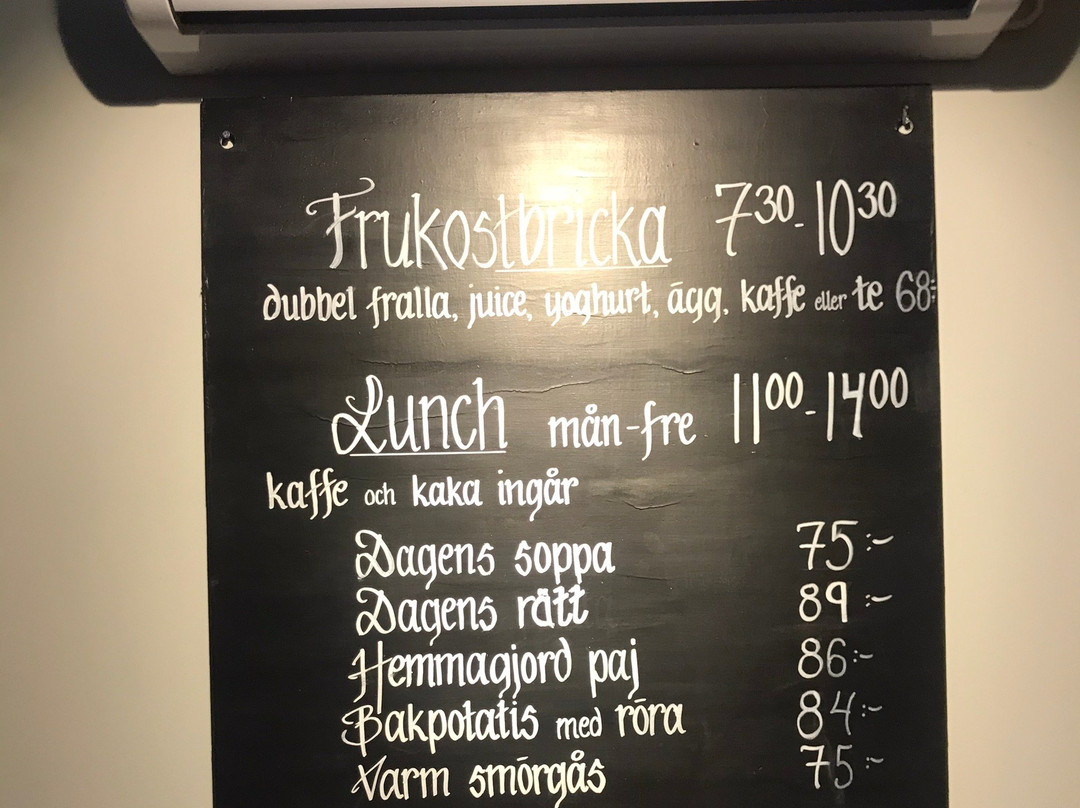 Frukostbricka 7³⁰-10³⁰
dubbel fralla, juice, yoghurt, ägg, kaffe eller te 68:-
Lunch mån-fre 11⁰⁰-14⁰⁰
kaffe och kaka ingår
Dagens soppa 75:-
Dagens rätt 89:-
Hemmagjord paj 86:-
Bakpotatis med röra 84:-
Varm smörgås 75:-